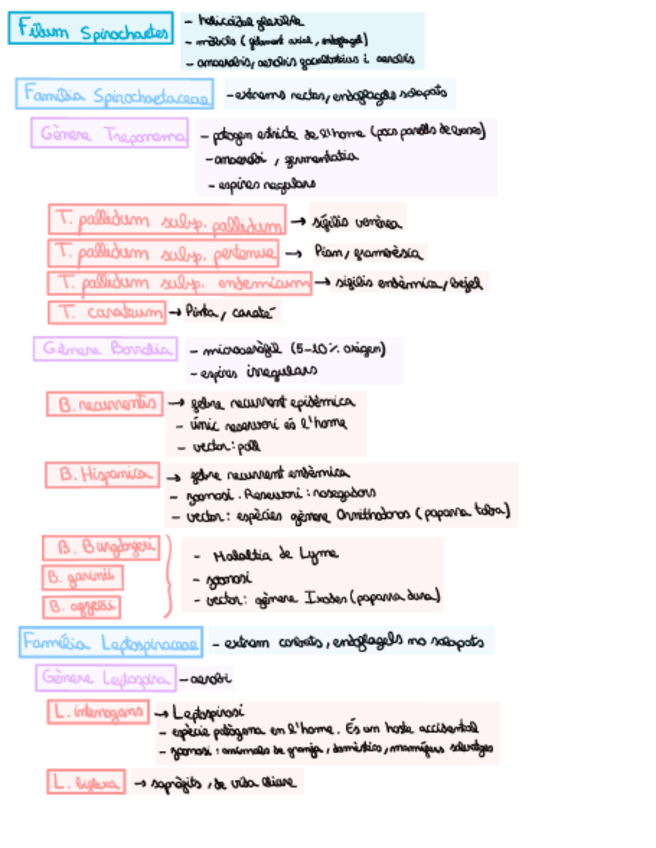 Fílum Spirochaetes
- helicoidal flexible
- mòbils (filament axial, endoflagel)
- anaerobis, aerobis facultatius i aerobis
Família Spirochaetaceae
- extrems rectes, endoflagels solapats
Gènere Treponema
- patogen estricte de l'home (pocs parells de bases)
- anaerobi, fermentatiu
- espires regulars
T. pallidum subsp. pallidum → sífilis venèrea
T. pallidum subsp. pertenue → Pian, frambèsia
T. pallidum subsp. endemicum → sífilis endèmica, bejel
T. carateum → Pinta, carate
Gènere Borrelia
- microaeròfil (5-10% oxigen)
- espires irregulars
B. recurrentis → febre recurrent epidèmica
- únic reservori és l'home
- vector: poll
B. Hispanica → febre recurrent endèmica
- zoonosi. Reservori: rosegadors
- vector: espècies gènere Ornithodoros (paparra tova)
B. Burgdorferi
B. garinii
B. afzelii
- Malaltia de Lyme
- zoonosi
- vector: gènere Ixodes (paparra dura)
Família Leptospiraceae
- extrem corbats, endoflagels no solapats
Gènere Leptospira - aerobi
L. interrogans → Leptospirosi
- espècie patògena en l'home. És un hoste accidental
- zoonosi: animals de granja, domèstics, mamífers salvatges
L. biflexa → sapròfits, de vida lliure